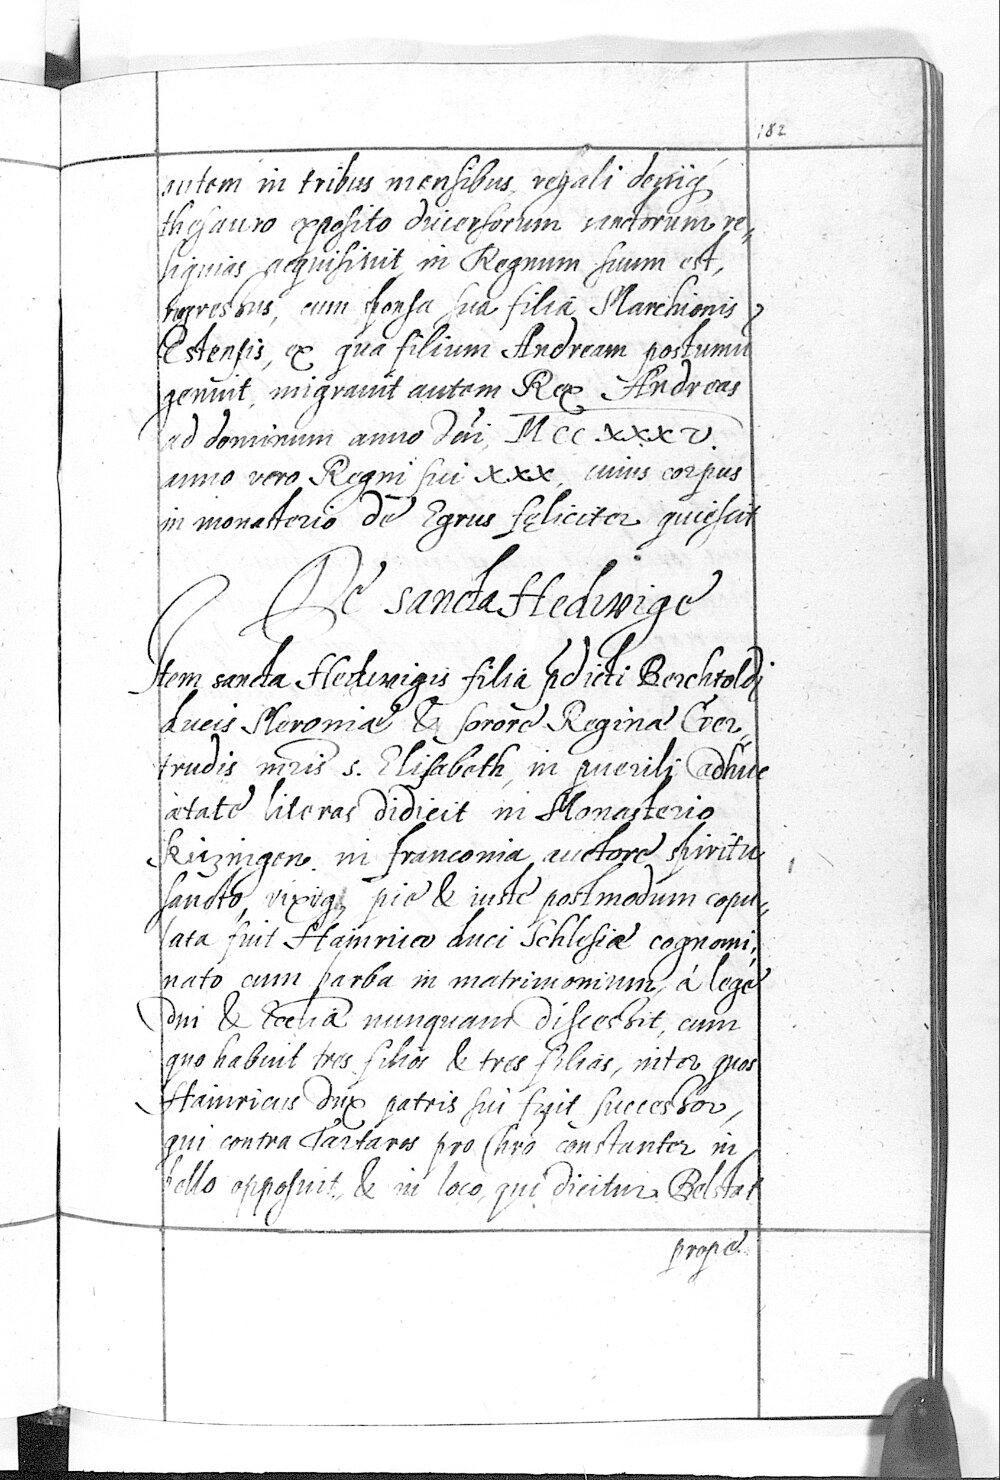 182
autem in tribus mensibus, regali deniq
thesauro exposito diuersorum sanctorum re,,
liquias acquisiuit, in Regnum suum est,
regressus, cum sponsa sua filia Marchionis
Estensis, ex qua filium Andream postumū
genuit, migrauit autem Rex Andreas
ad dominum anno dn̄i, MCCXXXV.
anno vero Regni sui XXX, cuius corpus
in monasterio de Egrus fęliciter quiescit
De sancta Hedwige
Item sancta Hedwigis filia p̄dicti Berchtoldi
ducis Meroniæ & sorore Reginæ Ger,,
trudis mr̄is s. Elisabeth, in puerili adhuc
ætate literas didicit in Monasterio
Kizingen in franconia, auctore spiritu
sancto, pie & iuste postmodum copu,,
lata fuit Hainrico duci Schlesiæ cognomi,,
nato cum barba in matrimonium, á lege
dn̄i & Eccliā nunquam discessit, cum
quo habuit tres filios & tres filias, inter quos
Hainricus dux patris sui fuit successor,
qui contra Tartaros pro Chr̄o constanter in
bello opposuit, & in loco, qui dicitur Belstat
prope